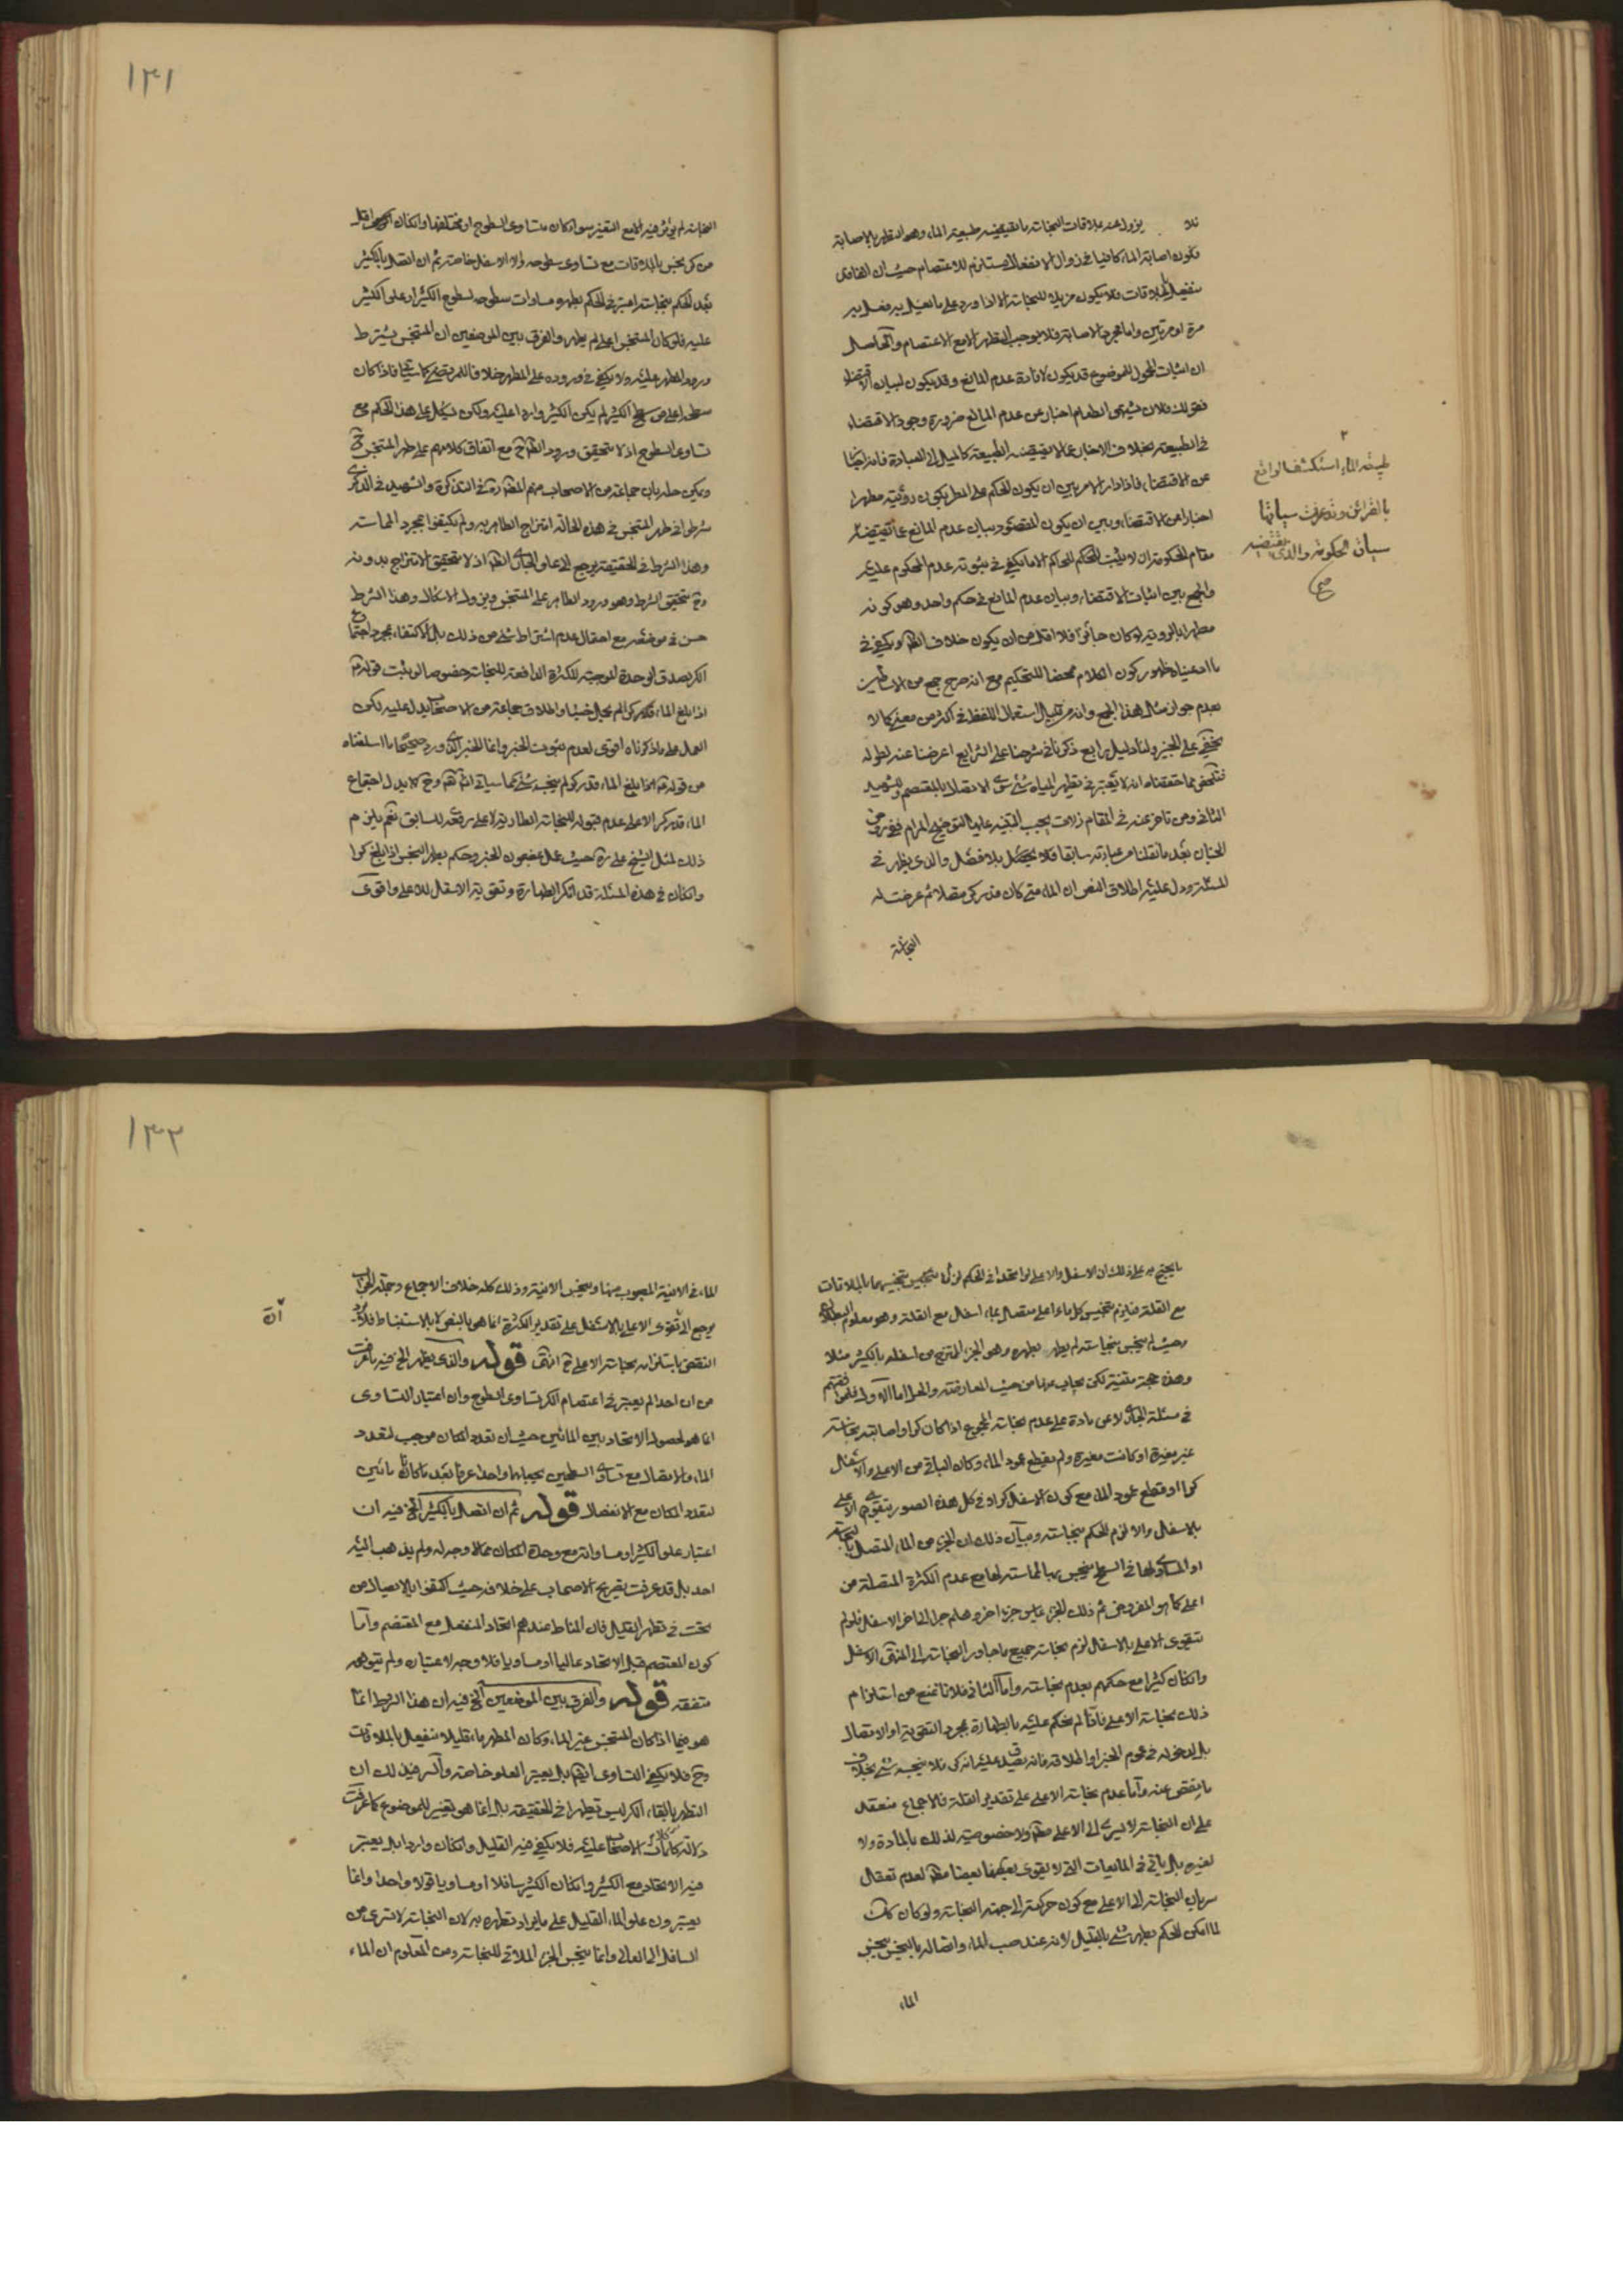 فلا يزول عند ملاقات النجاسة ما تقتضيه طبيعة الماء وهو التطهير بالاصابة
فكون اصابة الماء كافيا في زوال الانفعال يستلزم للاعتصام حيث ان
ينفعل بالملاقات فلا يكون مزيلا للنجاسة الا اذا ورد على ما يغسل به
مرة او مرتين واما مجرد الاصابة فلا يوجب التطهير الا مع الاعتصام والحاصل
ان اثبات المحمول للموضوع قد يكون لافادة عدم المانع وقد يكون لبيان الاقتضاء
فقولك فلان يشتهى الطعام اخبار عن عدم المانع ضرورة وجود الاقتضاء
في الطبيعة بخلاف الاخبار عما لا تقتضيه الطبيعة كالميل الى العبادة فانه اخبار
عن الاقتضاء فاذا دار الامر بين ان يكون الحكم على المطر بكون رؤيته مطهرا
اخبارا عن الاقتضاء وبين ان يكون المقصود بيان عدم المانع عما تقتضيه
مقام الحكومة ان لا يثبت الحكم للحاكم الا ما يكفي في ثبوته عدم المحكوم عليه
والجمع بين اثبات الاقتضاء وبيان عدم المانع في حكم واحد وهو كونه
مطهرا بالرؤية لو كان جائزا فلا اقل من ان يكون خلاف الظاهر ويكفي في
ما ادعيناه ظهور كون الكلام محضا للتحكيم مع انه صرح جمع من الاساطين
بعدم جواز مثل هذا الجمع وانه من قبيل استعمال اللفظ في اكثر من معنى كما لا
يخفى على الخبير ولنا دليل رابع ذكرناه في شرحنا على الشرايع اعرضنا عنه لطوله
فتلخص مما حققناه انه لا يعتبر في تطهير المياه شئ سوى الاتصال بالمعتصم وللشهيد
الثاني ومن تاخر عنه في المقام زلات يجب التنبيه عليها لتوضيح المرام ففي روض
الجنان بعد ما نقلنا من عبارته سابقا فلا يحصل بلا فصل والذي يظهر في
المسئلة ودل عليه اطلاق النص ان الماء متى كان قدر كر متصلا ثم عرضت له
النجاسة
٢
طبيعة الماء استكشف الواقع
بالقرائن وقد عرفت سياقها
سياق الحكومة والذي يقتضيه
صح
١٣١
النجاسة لم يؤثر فيه الا مع التغير سواء كان متساوى السطوح او مختلفها وان كان اقل
من كر نجس بالملاقات مع تساوى سطوحه والا الاسفل خاصة ثم ان اتصل بالكثير
بعد الحكم بنجاسته اعتبر في الحكم بطهره مساوات سطوحه لسطوح الكثير او علو الكثير
عليه فلو كان المتنجس اعلى لم يطهر والفرق بين الموضعين ان المتنجس يشترط
ورود المطهر عليه ولا يكفي وروده على المطهر خلافا للمرتضى كما سيأتي فاذا كان
سطحه اعلى من سطح الكثير لم يكن الكثير واردا عليه ولكن يشكل على هذا الحكم مع
تساوى السطوح اذ لا يتحقق ورود الطاهر ح مع اتفاق كلامهم على طهر المتنجس ح
ويمكن حله بان جماعة من الاصحاب منهم المصنف ره في التذكرة والشهيد في الذكرى
شرطوا في طهر المتنجس في هذه الحالة امتزاج الطاهر به ولم يكتفوا بمجرد المماسة
وهذا الشرط في الحقيقة يرجع الى علو الجاري اذ لا يتحقق الامتزاج بدونه
وح يتحقق الشرط وهو ورود الطاهر على المتنجس ويزول الاشكال وهذا الشرط
حسن في موضعه مع احتمال عدم اشتراط شئ من ذلك بل الاكتفاء بمجرد اجتماع
الكر لصدق الوحدة الموجبة للكثرة الدافعة للنجاسة خصوصا لو ثبت قوله ع
اذا بلغ الماء قدر كر لم يحمل خبثا واطلاق جماعة من الاصحاب يدل عليه لكن
العمل على ما ذكرناه اقوى لعدم ثبوت الخبر وانما الخبر الذي ورد صحيحا ما اسلفناه
من قوله ع اذا بلغ الماء قدر كر لم ينجسه شئ كما سياتي وح لا يدل اجتماع
الماء قدر كر الا على عدم قبوله للنجاسة الطارية لا على رفعه للسابق نعم يلزم
ذلك لمثل الشيخ على ره حيث عمل بمضمون الخبر وحكم بطهر النجس اذا بلغ كرا
وان كان في هذه المسئلة قد انكر الطهارة وتقوية الاسفل للاعلى واقوى
ما يحتج به على ذلك ان الاسفل والاعلى لو اتحدا في الحكم لزم تنجيس بالملاقات
مع القلة فيلزم تنجيس كل ماء اعلى متصل بماء اسفل مع القلة وهو معلوم البطلان
وحيث لم ينجس بنجاسته لم يطهر بطهره وهو الجزء المتزع من اسفله بالكثير مثلا
وهذه حجة متينة لكن يجاب عنها من حيث المعارضة والحل اما الاول
في مسئلة الجاري لا عن مادة على عدم نجاسة المجموع اذا كان كرا واصابته نجاسة
غير مغيرة او كانت مغيرة ولم يقطع عمود الماء وكان الباقي من الاعلى والاسفل
كرا او قطع عمود الماء مع كون الاسفل كرا وفي كل هذه الصور يتقوى الاعلى
بالاسفل والا لزم الحكم بنجاسته وبيان ذلك ان الجزء من الماء المتصل بالنجاسة
او المساوي لها في السطح ينجس بها لمماسته لها مع عدم الكثرة المتصلة من
اعلى كما هو المفروض ثم ذلك الجزء يماس جزءا اخر وهلم جرا الى اخر الاسفل فلو لم
يتقوى الاعلى بالاسفل لزم نجاسة جميع ما جاور النجاسة الى المنتهى الاسفل
وان كان كثيرا مع حكمهم بعدم نجاسته واما الثاني فلانا نمنع من استلزام
ذلك نجاسة الاعلى فانا لم نحكم عليه بالطهارة بمجرد التقوية او الاتصال
بل لدخوله في عموم الخبر او اطلاقه فانه يصدق عليه انه كر فلا ينجسه شئ بخلاف
ما ينقص عنه واما عدم نجاسة الاعلى على تقدير القلة فالاجماع منعقد
على ان النجاسة لا تسري الى الاعلى مطلقا ولا خصوصية لذلك بالمادة ولا
لغيره بل ياتي في المايعات التي لا يقوى بعضها بعضا مطلقا لعدم تعقل
سريان النجاسة الى الاعلى مع كون حركته الى جهة النجاسة ولو كان كذلك
لما امكن الحكم بطهر شئ بالقليل لانه عند صب الماء واتصاله بالنجس ينجس
الماء
١٣٢
الماء في الانية المصبوب منها وينجس الانية وذلك كله خلاف الاجماع
يرجع الى تقوى الاعلى بالاسفل على تقدير الكثرة انما هى بالنص لا بالاستنباط فلا يرد
النقض باستلزام نجاسة الاعلى ح انتهى قوله والذي يظهر الخ فيه ما عرفت
من ان احدا لم يعتبر في اعتصام الكر تساوى السطوح وان اعتبار التساوى
انما هو لحصول الاتحاد بين المائين حيث ان تعدد المكان موجب لتعدد
الماء والاتصال مع تساوى السطحين يجعلهما واحدا عرفا بعد ما كانا مائين
لتعدد المكان مع الانفصال قوله ثم ان اتصل بالكثير الخ فيه ان
اعتبار علو الكثير او مساواته مع وحدة المكان مما لا وجه له ولم يذهب اليه
احد بل قد عرفت تصريح الاصحاب على خلافه حيث اكتفوا بالاتصال من
تحت في تطهير القليل فان المناط عندهم اتحاد المنفعل مع المعتصم واما
كون المعتصم قبل الاتحاد عاليا او مساويا فلا وجه لاعتباره ولم يتوهمه
متفقه قوله والفرق بين الموضعين الخ فيه ان هذا الشرط انما
هو فيما اذا كان المتنجس غير الماء وكان المطهر ماء قليلا منفعلا بالملاقات
وح فلا يكفي التساوى ايضا بل يعتبر العلو خاصة والسر فيه ذلك ان
التطهر بالقاء الكر ليس تطهيرا في الحقيقة بل انما هو تغيير للموضوع كما عرفت
دلالة كلمات الاصحاب عليه فلا يكفي فيه القليل وان كان واردا بل يعتبر
فيه الاتحاد مع الكثير وان كان الكثير سافلا او مساويا قولا واحدا وانما
يعتبرون علو الماء القليل على ما يراد تطهيره به لان النجاسة لا تسري من
السافل الى العالى وانما ينجس الجزء الملاقي للنجاسة ومن المعلوم ان الماء